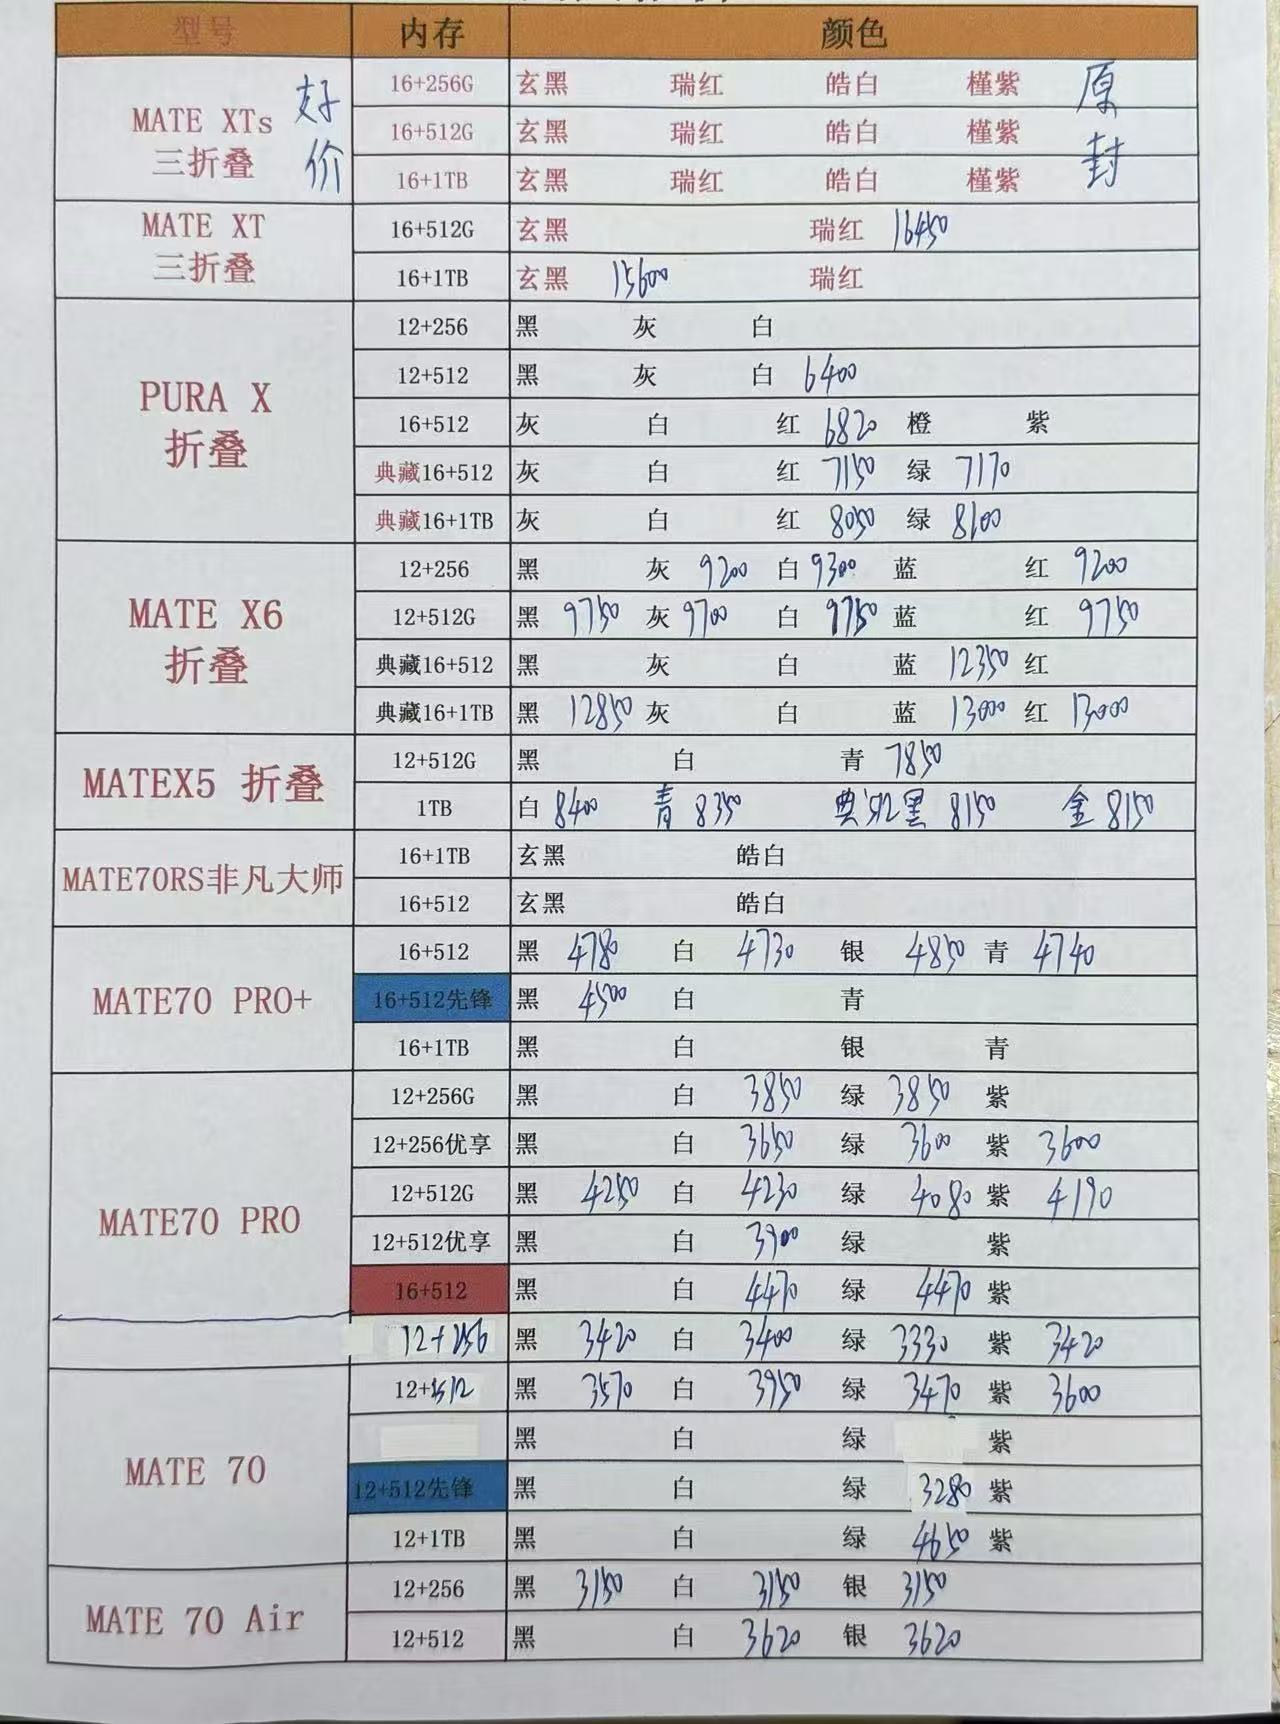 型号 内存 颜色
MATE XTs 三折叠 好价 原封
16+256G 玄黑 瑞红 皓白 槿紫
16+512G 玄黑 瑞红 皓白 槿紫
16+1TB 玄黑 瑞红 皓白 槿紫
MATE XT 三折叠
16+512G 玄黑 瑞红 16450
16+1TB 玄黑 15600 瑞红
PURA X 折叠
12+256 黑 灰 白
12+512 黑 灰 白 6400
16+512 灰 白 红 6820 橙 紫
典藏16+512 灰 白 红 7150 绿 7170
典藏16+1TB 灰 白 红 8050 绿 8100
MATE X6 折叠
12+256 黑 灰 9200 白 9300 蓝 红 9200
12+512G 黑 9750 灰 9700 白 9750 蓝 红 9750
典藏16+512 黑 灰 白 蓝 12350 红
典藏16+1TB 黑 12850 灰 白 蓝 13000 红 13000
MATEX5 折叠
12+512G 黑 白 青 7850
1TB 白 8400 青 8350 典 黑 8150 金 8150
MATE70RS非凡大师
16+1TB 玄黑 皓白
16+512 玄黑 皓白
MATE70 PRO+
16+512 黑 4780 白 4730 银 4850 青 4740
16+512先锋 黑 4500 白 青
16+1TB 黑 白 银 青
MATE70 PRO
12+256G 黑 白 3850 绿 3850 紫
12+256优享 黑 白 3650 绿 3600 紫 3600
12+512G 黑 4250 白 4230 绿 4080 紫 4190
12+512优享 黑 白 3900 绿 紫
16+512 黑 白 4470 绿 4470 紫
MATE 70
12+256 黑 3420 白 3400 绿 3330 紫 3420
12+512 黑 3570 白 3950 绿 3470 紫 3600
黑 白 绿 紫
12+512先锋 黑 白 绿 3280 紫
12+1TB 黑 白 绿 4650 紫
MATE 70 Air
12+256 黑 3150 白 3150 银 3150
12+512 黑 白 3620 银 3620